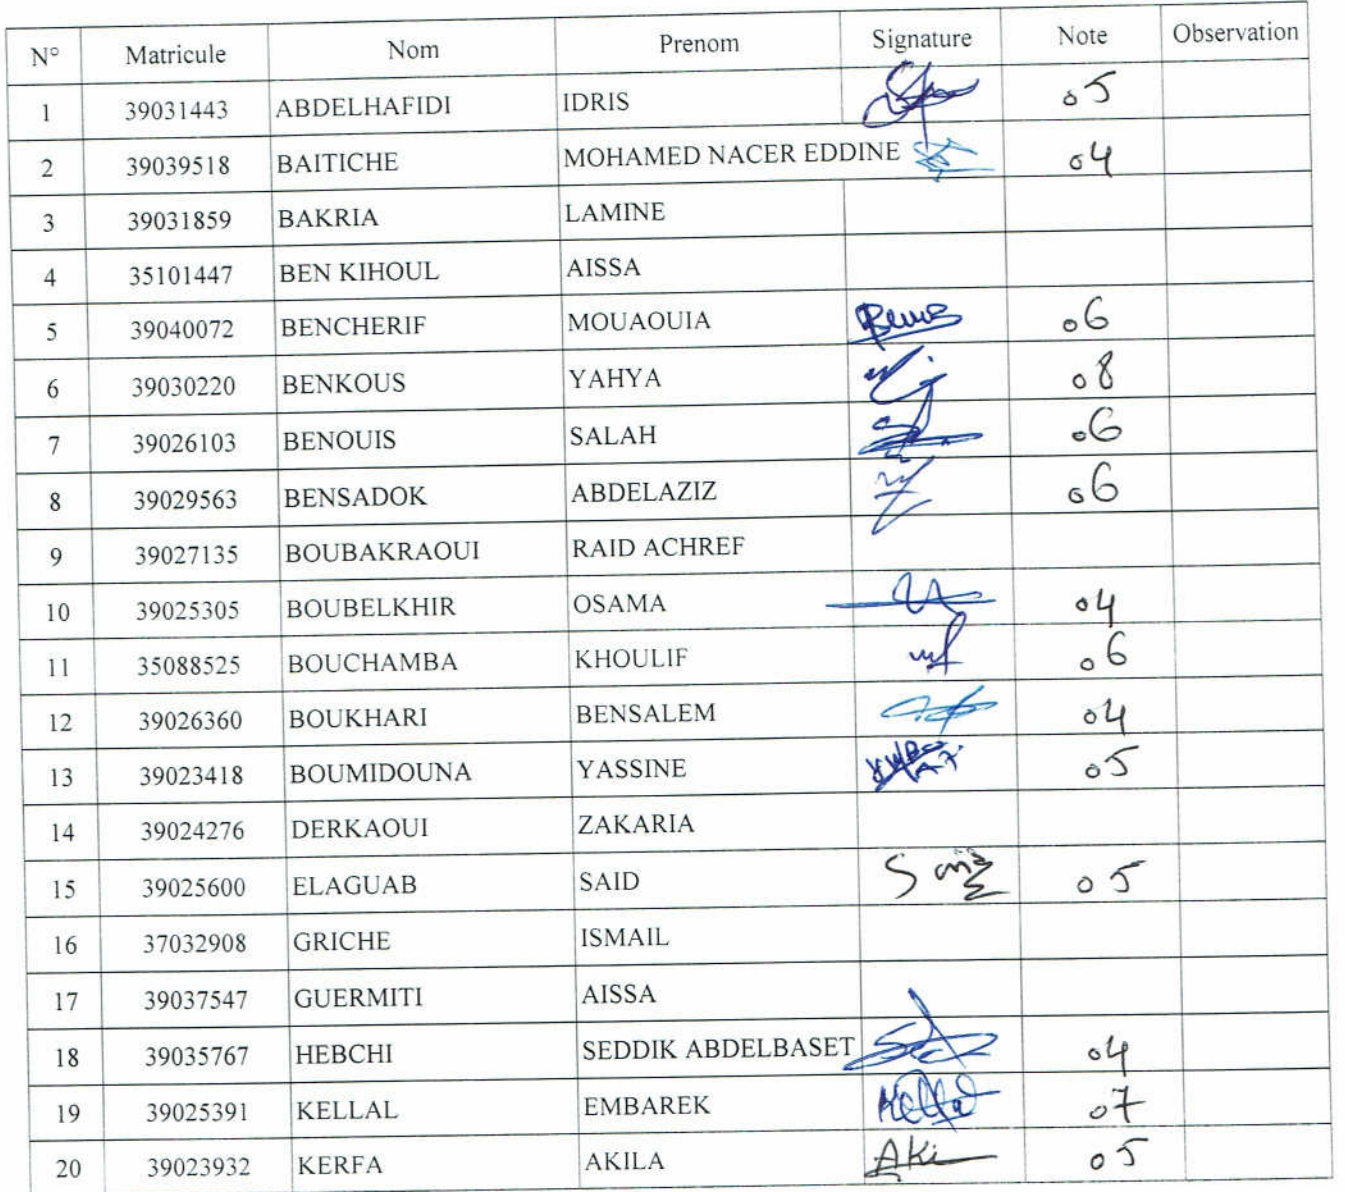 N° Matricule Nom Prenom Signature Note Observation
1 39031443 ABDELHAFIDI IDRIS 05
2 39039518 BAITICHE MOHAMED NACER EDDINE 04
3 39031859 BAKRIA LAMINE
4 35101447 BEN KIHOUL AISSA
5 39040072 BENCHERIF MOUAOUIA 06
6 39030220 BENKOUS YAHYA 08
7 39026103 BENOUIS SALAH 06
8 39029563 BENSADOK ABDELAZIZ 06
9 39027135 BOUBAKRAOUI RAID ACHREF
10 39025305 BOUBELKHIR OSAMA 04
11 35088525 BOUCHAMBA KHOULIF 06
12 39026360 BOUKHARI BENSALEM 04
13 39023418 BOUMIDOUNA YASSINE 05
14 39024276 DERKAOUI ZAKARIA
15 39025600 ELAGUAB SAID 05
16 37032908 GRICHE ISMAIL
17 39037547 GUERMITI AISSA
18 39035767 HEBCHI SEDDIK ABDELBASET 04
19 39025391 KELLAL EMBAREK Kellal 07
20 39023932 KERFA AKILA AKi 05